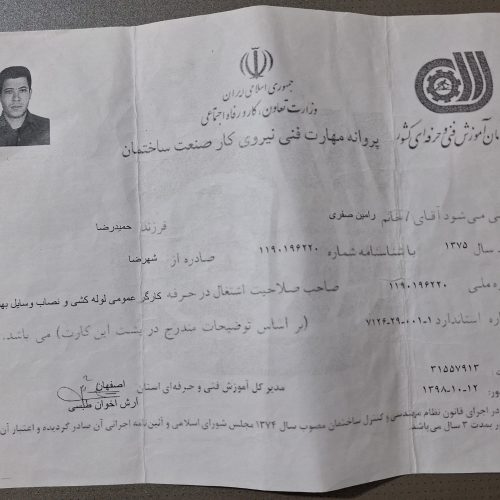 جمهوری اسلامی ایران
وزارت تعاون، کار و رفاه اجتماعی
مان آموزش فنی و حرفه ای کشور
پروانه مهارت فنی نیروی کار صنعت ساختمان
ی می شود آقای / خانم رامین صفری فرزند حمیدرضا
سال ۱۳۷۵ با شناسنامه شماره ۱۱۹۰۱۹۶۲۲۰ صادره از شهرضا
ملی ۱۱۹۰۱۹۶۲۲۰ صاحب صلاحیت اشتغال در حرفه کارگر عمومی لوله کشی و نصاب وسایل به
ره استاندارد ۱-۰۰۱-۲۹-۷۱۲۶ (بر اساس توضیحات مندرج در پشت این کارت) می باشد.
۳۱۵۵۷۹۱۳
ور: ۱۳۹۸-۱۰-۱۲
مدیر کل آموزش فنی و حرفه ای استان اصفهان
آرش اخوان طبسی
در اجرای قانون نظام مهندسی و کنترل ساختمان مصوب سال ۱۳۷۴ مجلس شورای اسلامی و آئین نامه اجرائی آن صادر گردیده و اعتبار آن
ور بمدت ۳ سال می باشد.